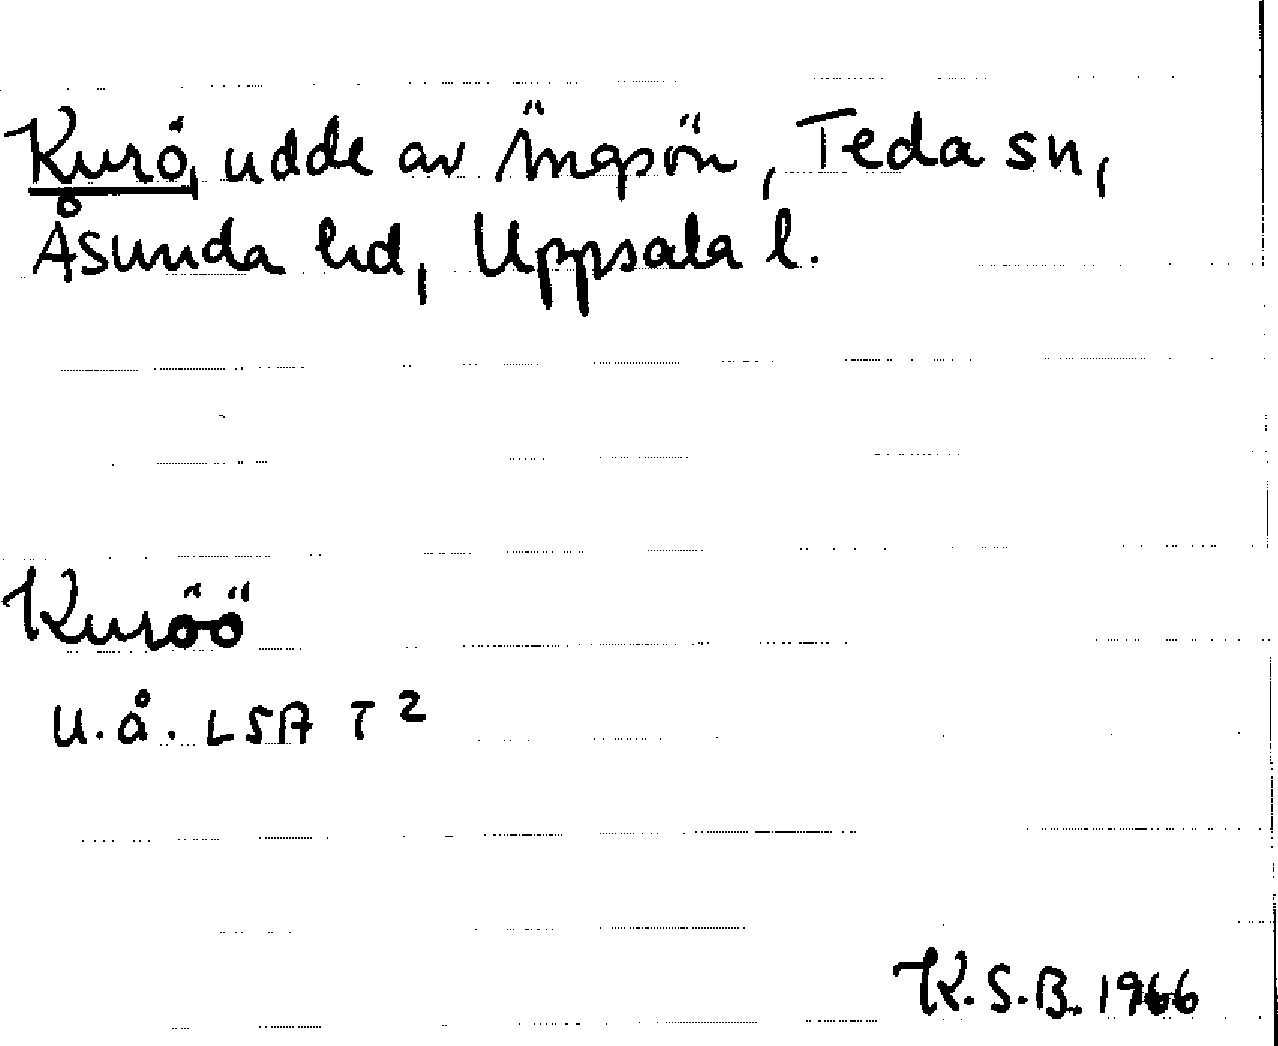 Kurö, udde av Ängsön, Teda sn,
Åsunda hd, Uppsala l.
Kuröö
U.å. LSA T 2
K.S.B. 1966